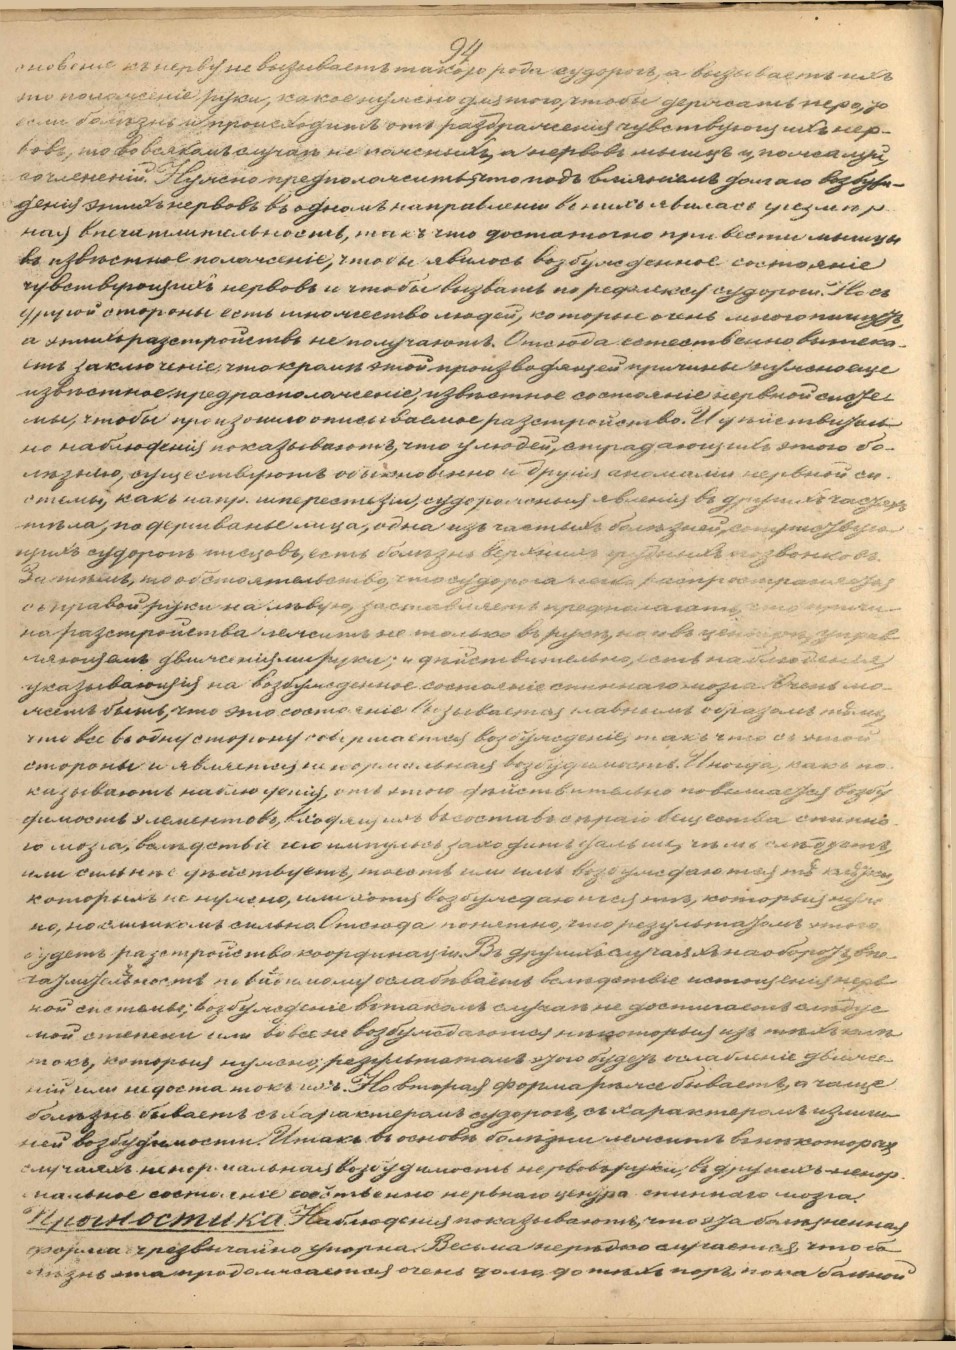 94
къ нерву не вызываетъ такого рода судорогъ, а вызываетъ ихъ
то положеніе руки, какое нужно для того, чтобы держать перо, и
если болѣзнь и происходитъ отъ раздраженія чувствующихъ нер-
вовъ, то во всякомъ случаѣ не кожныхъ, а нервовъ мышцъ и, пожалуй,
сочлененій. Нужно предположить, что подъ вліяніемъ долгаго возбуж-
денія этихъ нервовъ въ одномъ направленіи въ нихъ явилась чрезмѣр-
ная впечатлительность, такъ что достаточно привести мышцы
въ извѣстное положеніе, чтобы явилось возбужденное состояніе
чувствующихъ нервовъ и чтобы вызвать по рефлексу судороги. Но съ
другой стороны есть множество людей, которые очень много пишутъ,
а этихъ разстройствъ не получаютъ. Отсюда естественно вытека-
етъ заключеніе, что кромѣ этой производящей причины нужно еще
извѣстное предрасположеніе, извѣстное состояніе нервной систе-
мы, чтобы произошло описываемое разстройство. И дѣйствитель-
но наблюденія показываютъ, что у людей, страдающихъ этою бо-
лѣзнію, существуютъ обыкновенно и другія аномаліи нервной си-
стемы, какъ напр. гиперестезіи, судорожныя явленія въ другихъ частяхъ
тѣла, подергиванье лица, одна изъ частыхъ болѣзней, сопутствую-
щихъ судорогѣ писцовъ, есть болѣзнь верхнихъ грудныхъ позвонковъ.
Затѣмъ, то обстоятельство, что судорога легко распространяется
съ правой руки на лѣвую, заставляетъ предполагать, что причи-
на разстройства лежитъ не только въ рукѣ, но и въ центрѣ, управ-
ляющемъ движеніями руки; и дѣйствительно, есть наблюденія,
указывающія на возбужденное состояніе спиннаго мозга. Очень мо-
жетъ быть, что это состояніе вызывается главнымъ образомъ тѣмъ,
что все въ одну сторону совершается возбужденіе, такъ что съ этой
стороны и является ненормальная возбудимость. Иногда, какъ по-
казываютъ наблюденія, отъ этого дѣйствительно повышается возбу-
димость элементовъ, входящихъ въ составъ сѣраго вещества спинна-
го мозга, вслѣдствіе чего импульсъ заходитъ дальше, чѣмъ слѣдуетъ,
или сильнѣе дѣйствуетъ, то есть или имъ возбуждаются тѣ клѣтки,
которыхъ не нужно, или хотя возбуждаются тѣ, которыя нуж-
но, но слишкомъ сильно. Отсюда понятно, что результатомъ этого
будетъ разстройство координаціи. Въ другихъ случаяхъ наоборотъ, впе-
чатлительность повидимому ослабѣваетъ вслѣдствіе истощенія нерв-
ной системы; возбужденіе въ такомъ случаѣ не достигаетъ слѣдуе-
мой степени или вовсе не возбуждаются нѣкоторыя изъ тѣхъ клѣ-
токъ, которыя нужно; результатомъ этого будетъ ослабленіе движе-
ній или недостатокъ ихъ. Но вторая форма рѣже бываетъ, а чаще
болѣзнь бываетъ съ характеромъ судорогъ, съ характеромъ излиш-
ней возбудимости. Итакъ въ основѣ болѣзни лежитъ въ нѣкоторыхъ
случаяхъ ненормальная возбудимость нервовъ руки, въ другихъ ненор-
мальное состояніе собственно нервнаго центра спиннаго мозга.
Прогностика. Наблюденія показываютъ, что эта болѣзненная
форма чрезвычайно упорна. Весьма нерѣдко случается, что бо-
лѣзнь эта продолжается очень долго, до тѣхъ поръ, пока больной